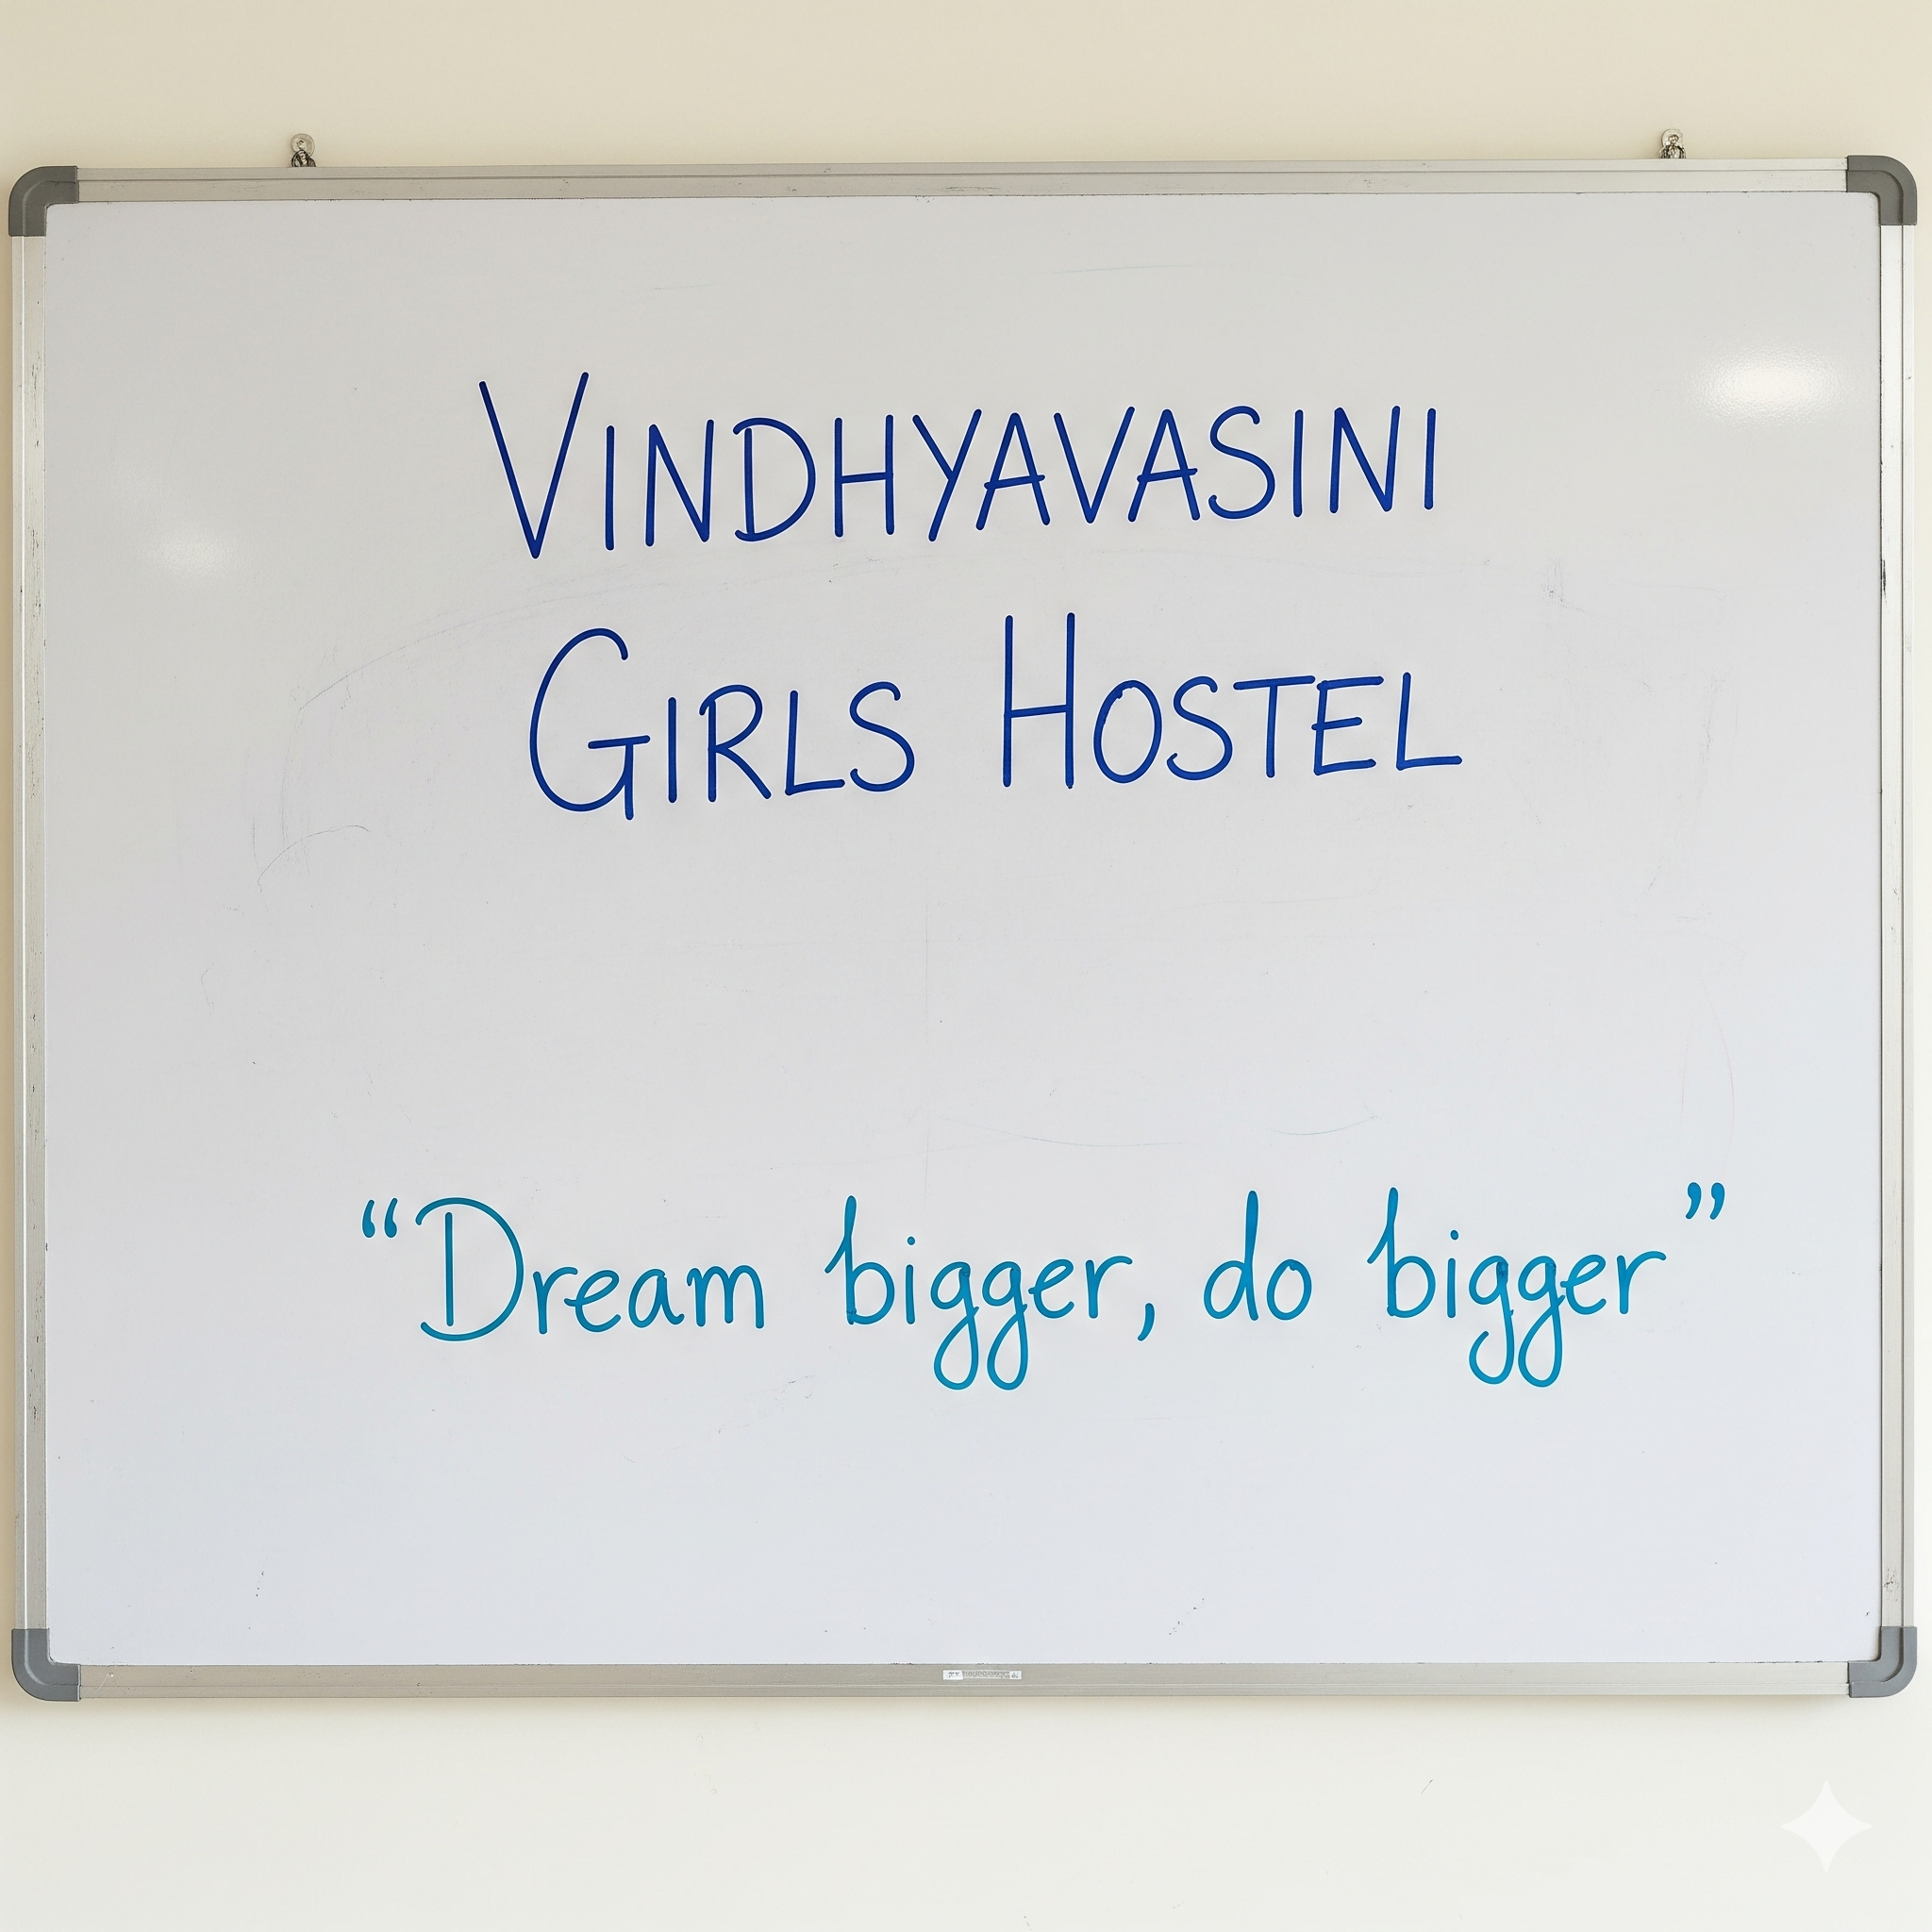 VINDHYAVASINI
GIRLS HOSTEL
“Dream bigger, do bigger”